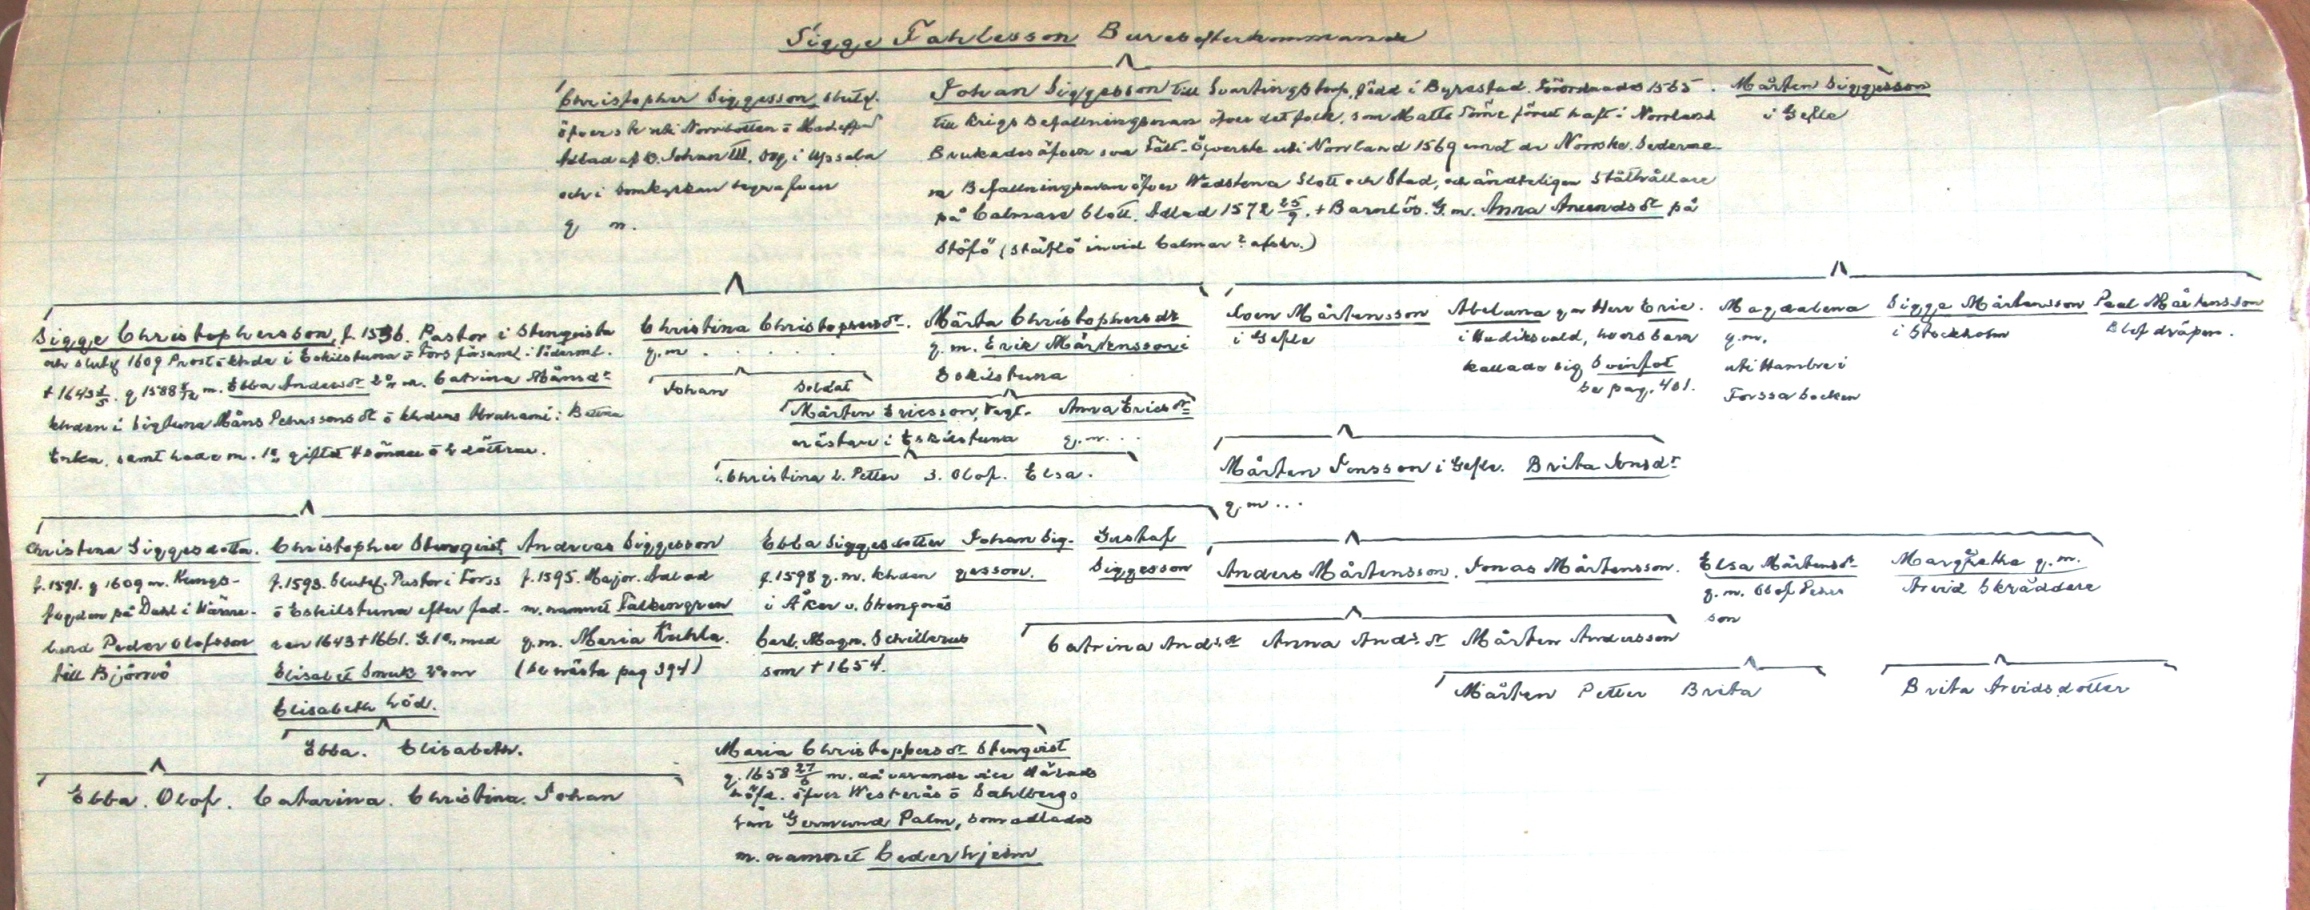 Sigge Fahlesson Bures efterkommande
Christopher Siggesson slutl.
öfverste uti Norrbotten ö
Adlad af K. Johan III. Dog i Upsala
och i Domkyrkan begrafven
g m.
Johan Siggesson till Svartingstorp, född i Byrestad. Förordnades 1565.
till Krigs Befallningsman öfver det folk, som Matts Törne förut haft i Norrland
Brukades äfven som Fält-Öfverste uti Norrland 1569 emot de Norske. Sederme-
ra Befallningsman öfver Wadstena Slott och Stad, och ändteligen Ståthållare
på Calmare Slott. Adlad 1572 25/9. + Barnlös. G. m. Anna Anundsdr på
Stöfö (Stäflö invid Calmar? afskr.)
Mårten Siggesson
i Gefle
Sigge Christophersson, f. 1556. Pastor i Stenqvista
och slutl 1609 Prost ö khde i Eskilstuna ö Fors församl. i Söderml.
+ 1643 g 1588 m. Ebba Andersdr 2o m. Catrina Månsdr
khden i Sigtuna Måns Pehrssons dr ö khdens Abrahami
Enka, samt hade m. 1a giftet 4 söner ö 2 döttrar.
Christina Christophersdr.
g.m . . . .
Johan Soldat
Märta Christophersdr
g. m. Erik Mårtensson i
Eskilstuna
Mårten Ericsson, Vagt-
mästare i Eskilstuna
Anna Ericsdr
g.m. . .
1. Christina 2. Petter 3. Olof. Elsa.
Joen Mårtensson
i Gefle
Abeluna gm Herr Eric.
i Hudiksvald, hvars barn
kallade sig Svinfot
Se pag. 401.
Magdalena
g.m.
uti Hambre i
Forssa Socken
Sigge Mårtensson
i Stockholm
Paul Mårtensson
Blef dräpen.
Mårten Jonsson i Gefle. Brita Jonsdr
g.m ...
Christina Siggesdotter.
f. 1591. g 1609 m. Kungs-
fogden på Dahl i Wärm-
land Peder Olofsson
till Björnö
Christopher Stenqvist
f. 1593. Slutl. Pastor i Forss
ö Eskilstuna efter fad-
ren 1643 + 1661. G. 1o med
Elisabet Smuk 2o m
Elisabeth Löd.
Andreas Siggesson
f. 1595. Major. Adlad
m. namnet Falkengren
g.m. Maria Kuhla.
(Se nästa pag 394)
Ebba Siggesdotter
f. 1598 g. m. khden
i Åker v. Strengnäs
Carl. Magn. Schillerus
som + 1654.
Johan Sig-
gesson.
Gustaf
Siggesson
Anders Mårtensson. Jonas Mårtensson.
Elsa Mårtensdr
g. m. Olof Pehrs
son
Margretha g. m.
Arvid Skräddare
Catrina Andsdr Anna Andsdr Mårten Andersson
Mårten Petter Brita
Brita Arvidsdotter
Ebba. Elisabeth.
Maria Christophersdr Stenqvist
g. 1658 27/6 m. dåvarande vice Härads
höfd. öfver Westerås ö Sahlbergs
län Germund Palm, som adlades
m. namnet Cederhjelm
Ebba. Olof. Catarina. Christina. Johan